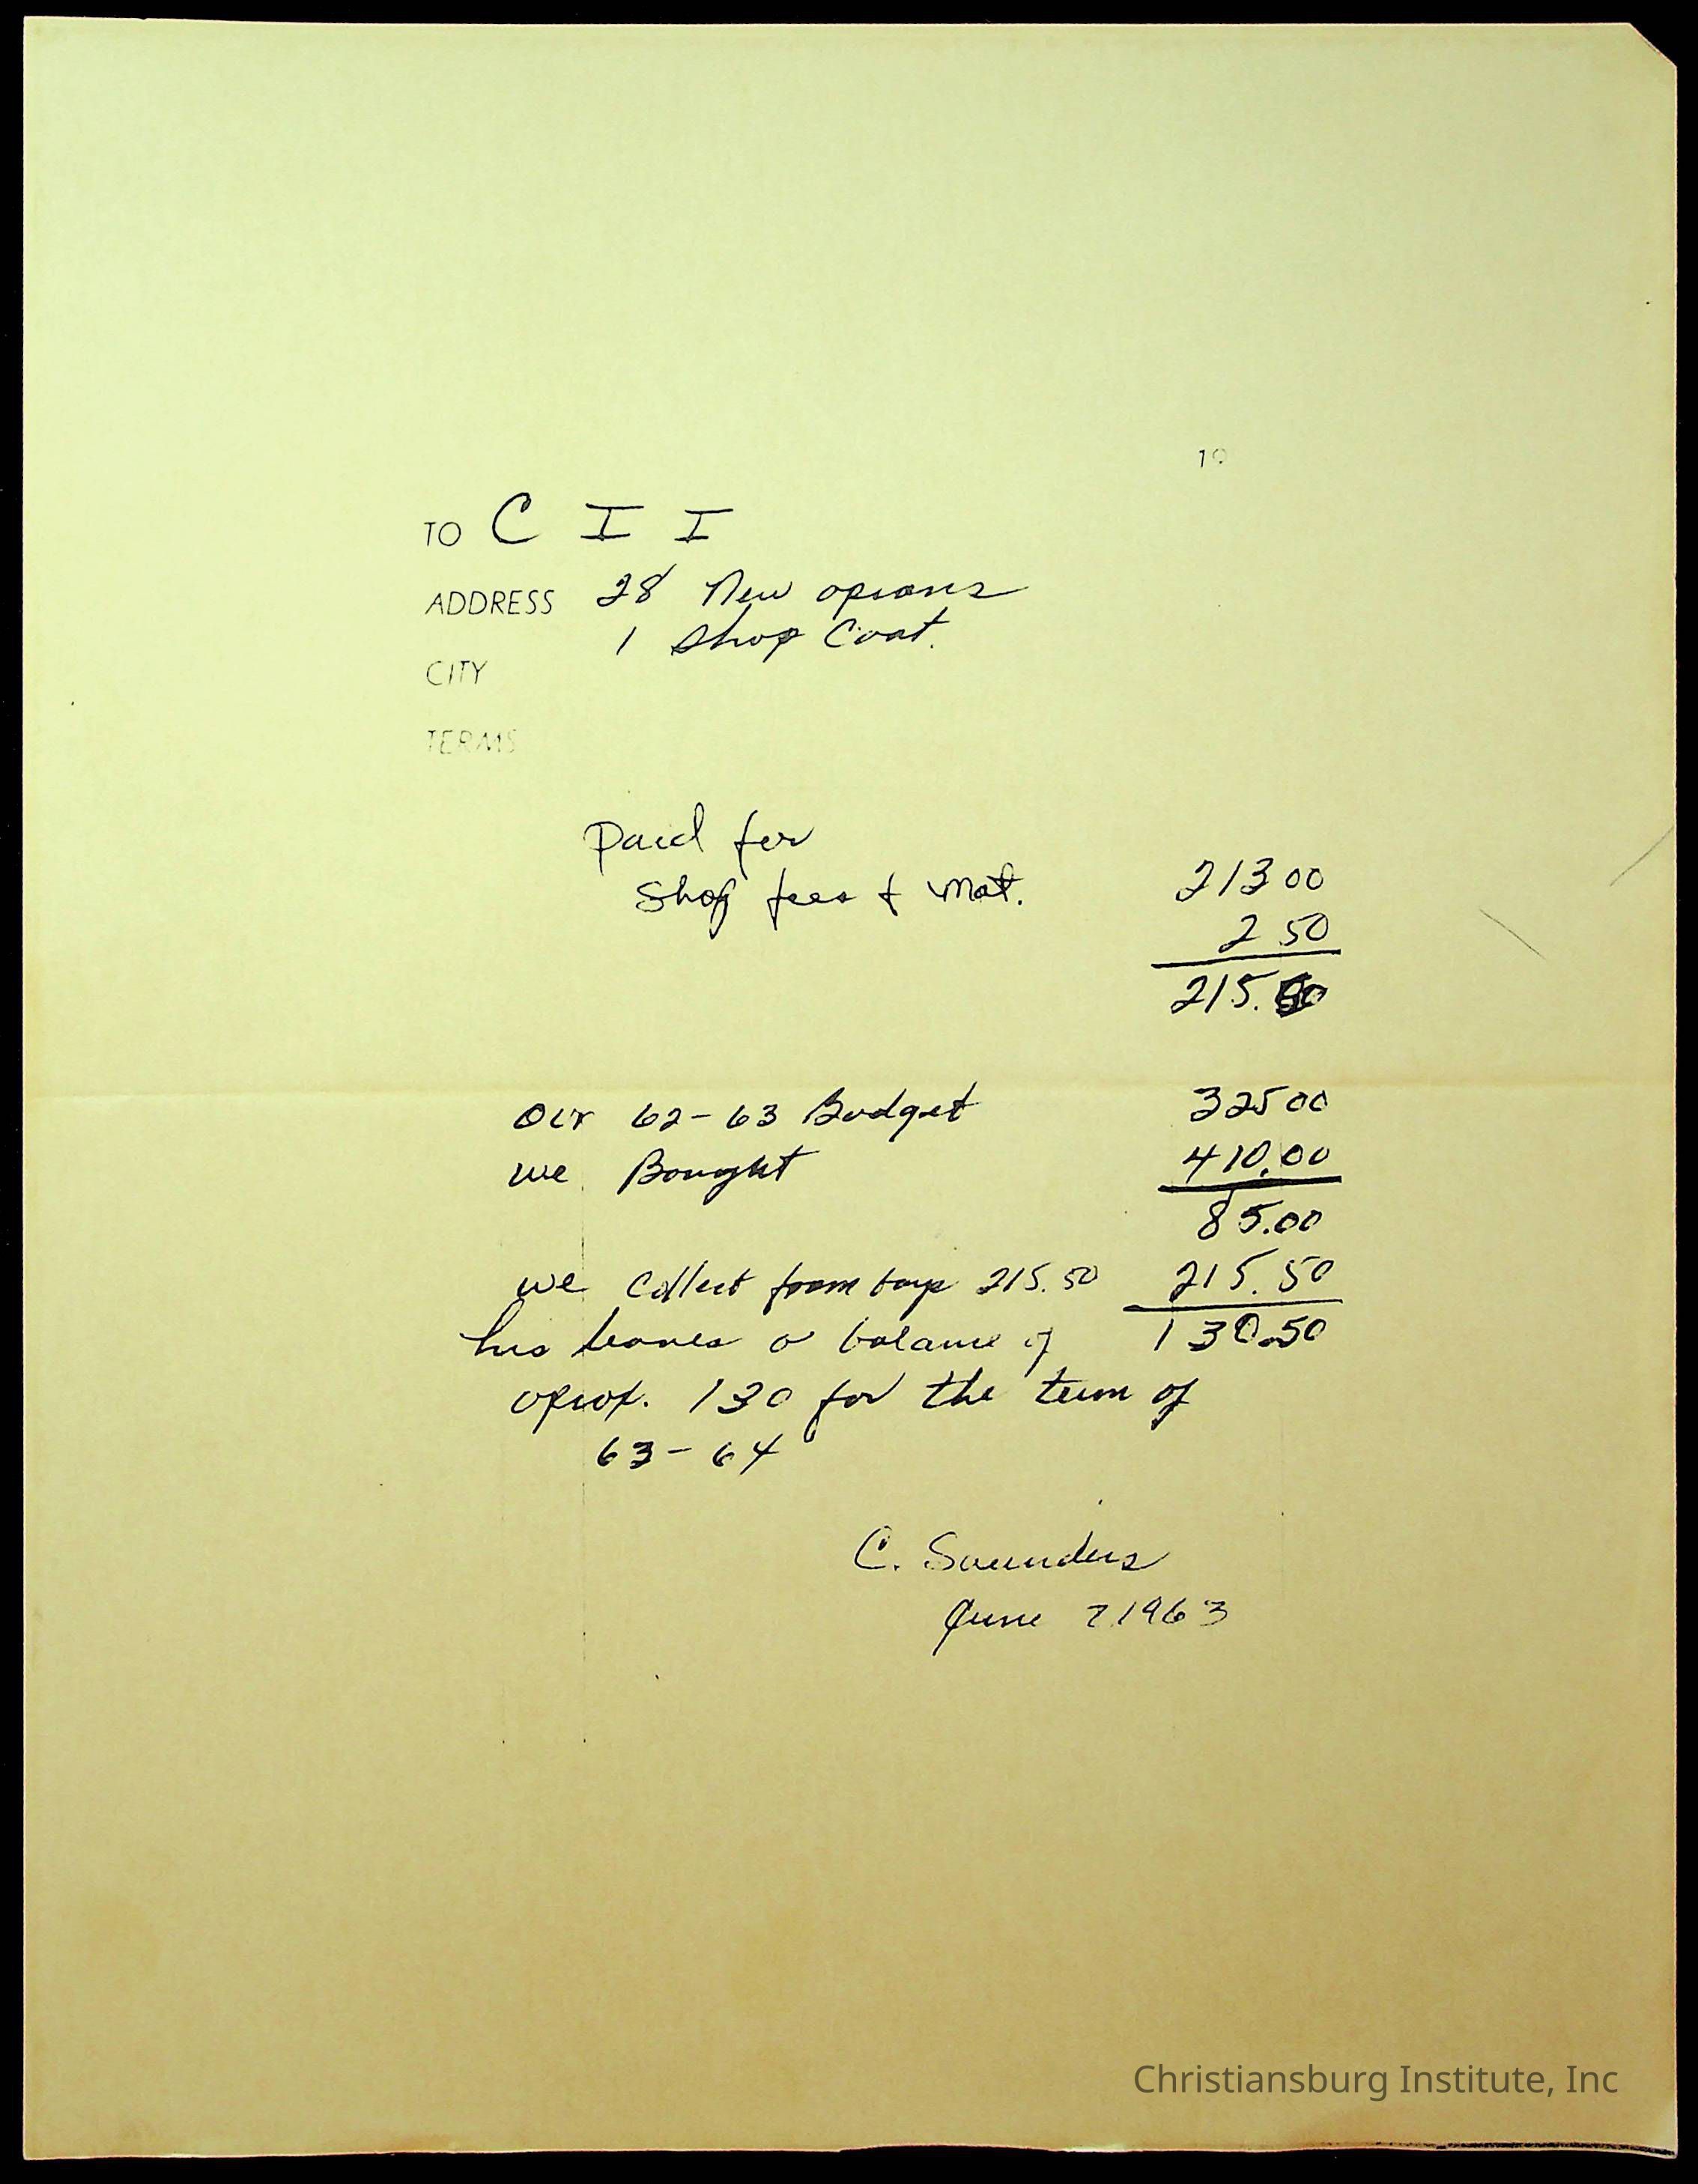 19
TO C I I
ADDRESS 28 New aprons
1 Shop Coat.
CITY
TERMS
Paid for
Shop fees & Mat. 213 00
2 50
215.50
Our 62-63 Budget 325 00
we Bought 410.00
85.00
we Collect from boys 215.50 215.50
his leaves a balance of 130.50
aprox. 130 for the term of
63-64
C. Saunders
June 7 1963
Christiansburg Institute, Inc